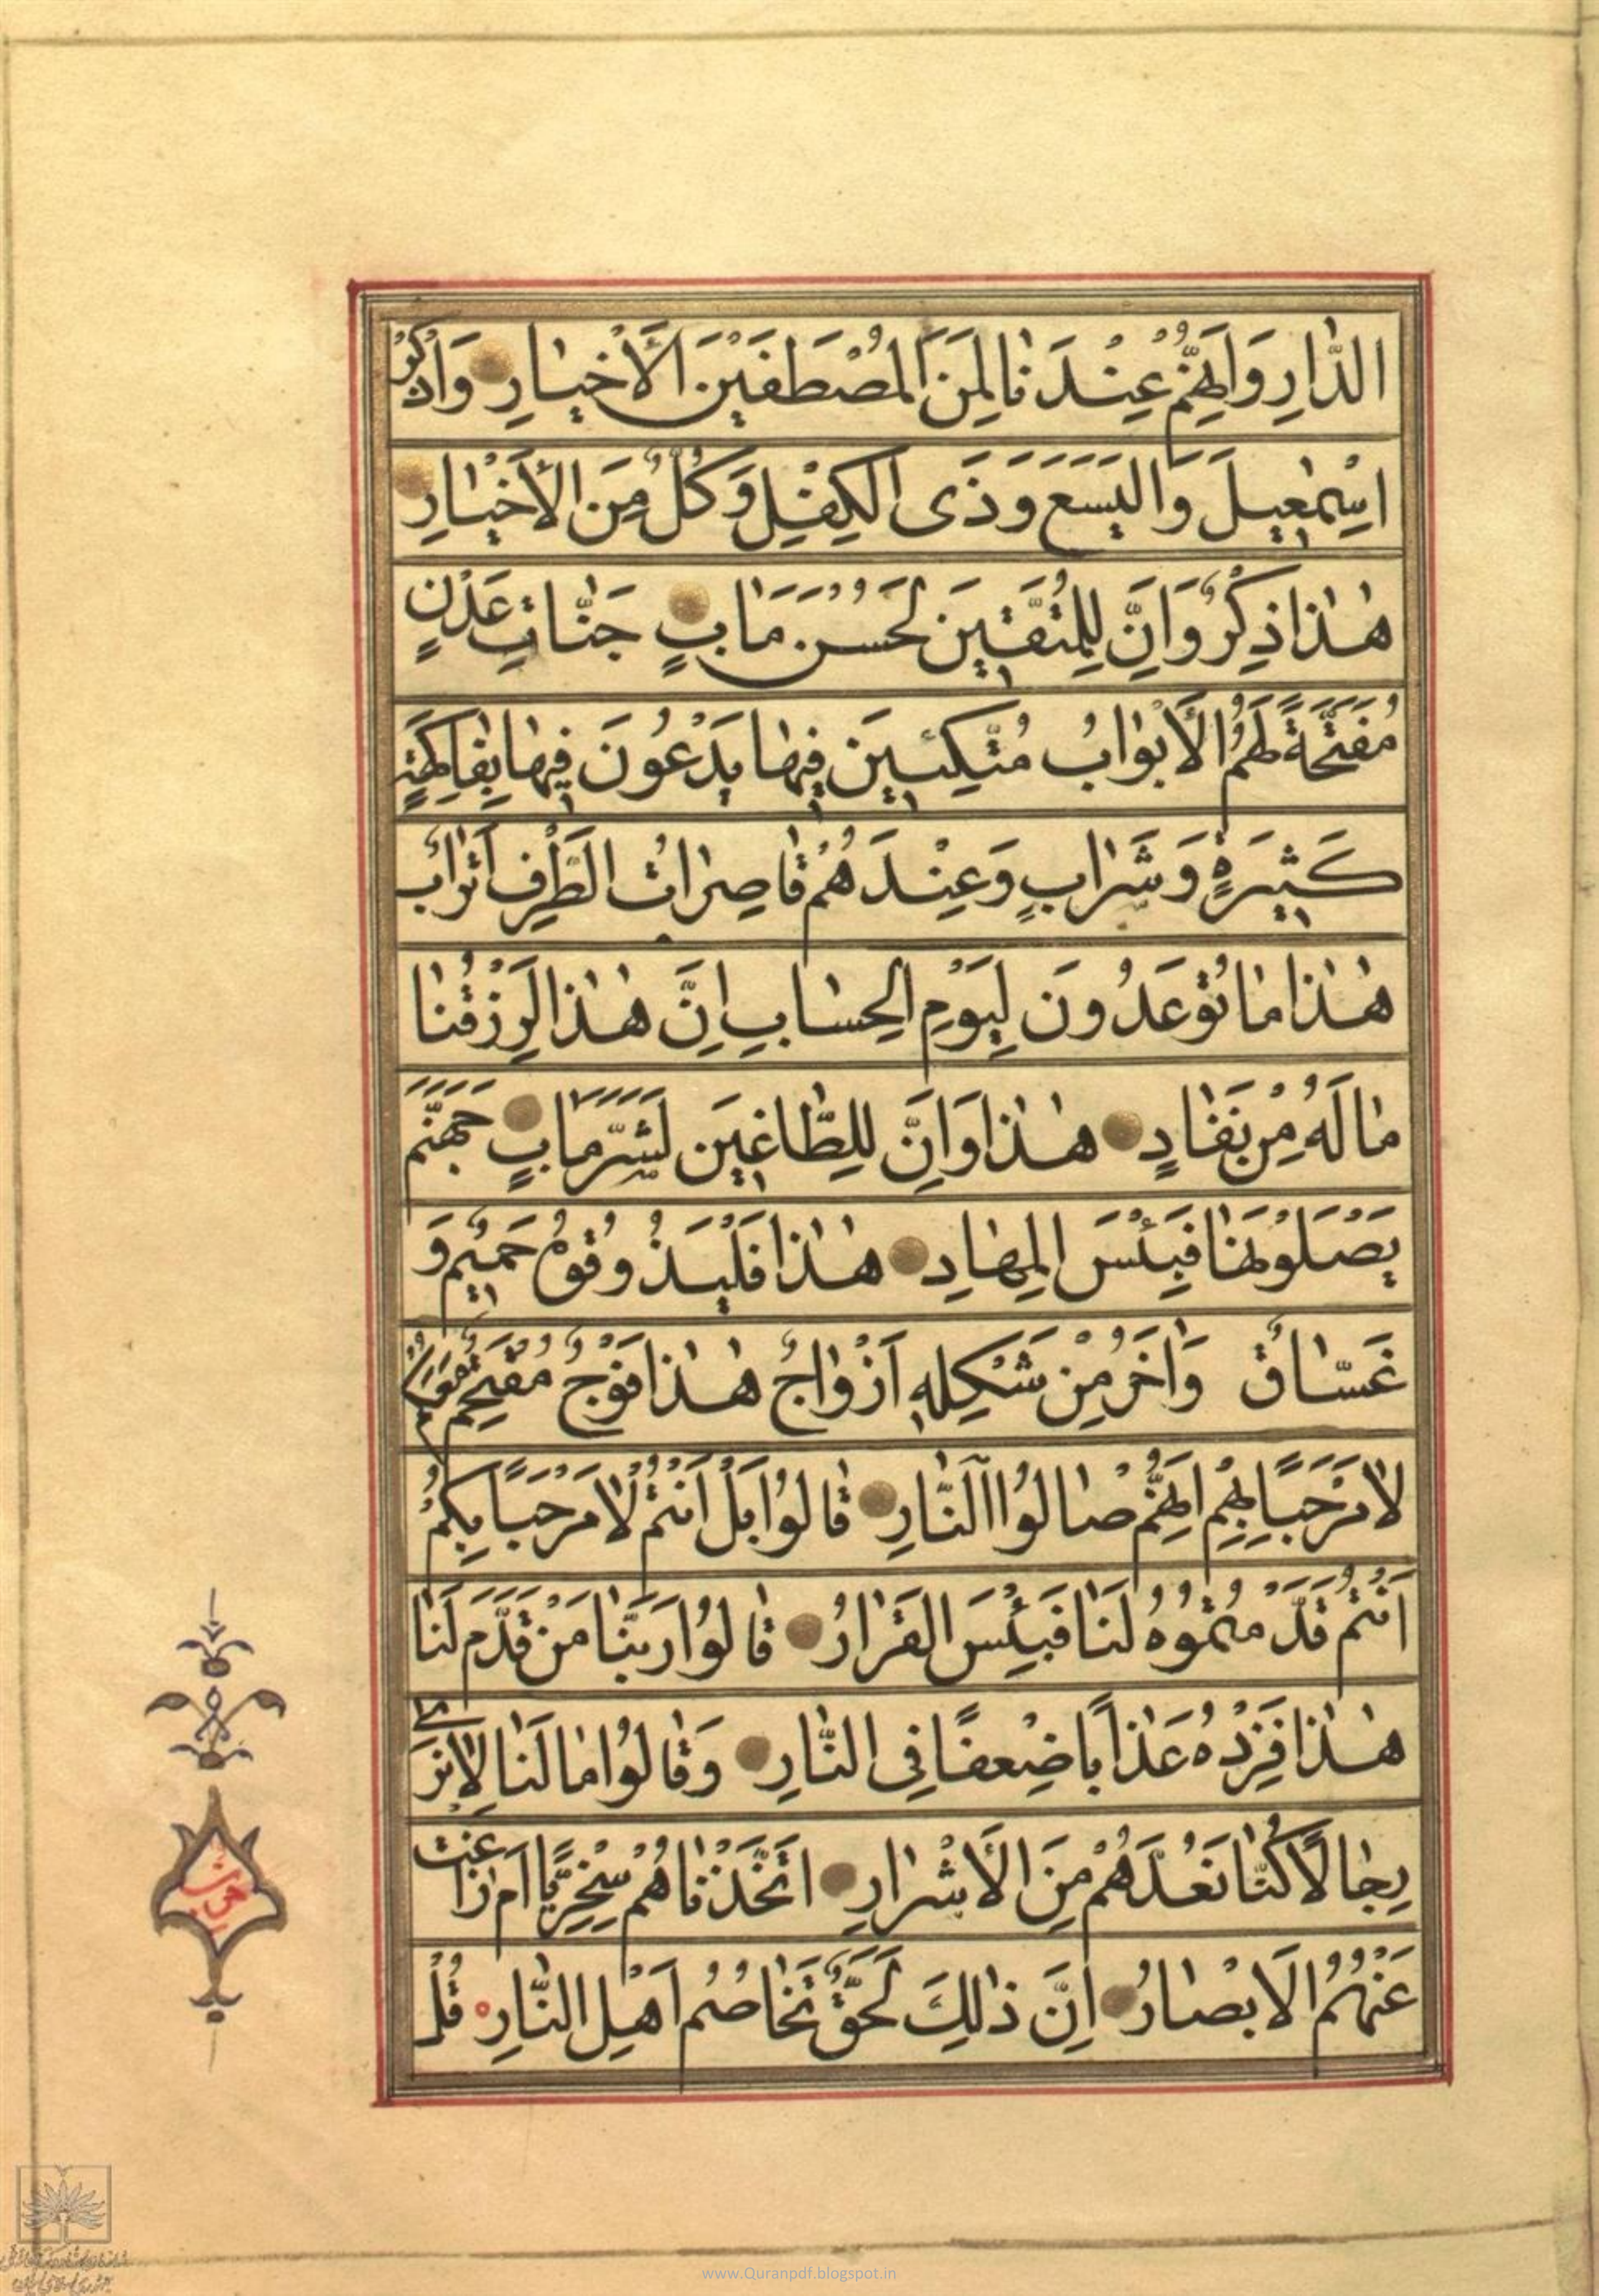 الدَّارِ وَاِنَّهُمْ عِنْدَنَا لَمِنَ الْمُصْطَفَيْنَ الْاَخْيَارِ وَاذْكُرْ
اِسْمٰعِيلَ وَالْيَسَعَ وَذَى الْكِفْلِ وَكُلٌّ مِنَ الْاَخْيَارِ
هٰذَا ذِكْرٌ وَاِنَّ لِلْمُتَّقِينَ لَحُسْنَ مَاٰبٍ جَنَّاتِ عَدْنٍ
مُفَتَّحَةً لَهُمُ الْاَبْوَابُ مُتَّكِئِينَ فِيهَا يَدْعُونَ فِيهَا بِفَاكِهَةٍ
كَثِيرَةٍ وَشَرَابٍ وَعِنْدَهُمْ قَاصِرَاتُ الطَّرْفِ اَتْرَابٌ
هٰذَا مَا تُوعَدُونَ لِيَوْمِ الْحِسَابِ اِنَّ هٰذَا لَرِزْقُنَا
مَا لَهُ مِنْ نَفَادٍ هٰذَا وَاِنَّ لِلطَّاغِينَ لَشَرَّ مَاٰبٍ جَهَنَّمَ
يَصْلَوْنَهَا فَبِئْسَ الْمِهَادِ هٰذَا فَلْيَذُوقُوهُ حَمِيمٌ وَ
غَسَّاقٌ وَاٰخَرُ مِنْ شَكْلِهِ اَزْوَاجٌ هٰذَا فَوْجٌ مُقْتَحِمٌ مَعَكُمْ
لَا مَرْحَبًا بِهِمْ اِنَّهُمْ صَالُوا النَّارِ قَالُوا بَلْ اَنْتُمْ لَا مَرْحَبًا بِكُمْ
اَنْتُمْ قَدَّمْتُمُوهُ لَنَا فَبِئْسَ الْقَرَارُ قَالُوا رَبَّنَا مَنْ قَدَّمَ لَنَا
هٰذَا فَزِدْهُ عَذَابًا ضِعْفًا فِى النَّارِ وَقَالُوا مَا لَنَا لَا نَرٰى
رِجَالًا كُنَّا نَعُدُّهُمْ مِنَ الْاَشْرَارِ اَتَّخَذْنَاهُمْ سِخْرِيًّا اَمْ زَاغَتْ
عَنْهُمُ الْاَبْصَارُ اِنَّ ذٰلِكَ لَحَقٌّ تَخَاصُمُ اَهْلِ النَّارِ قُلْ
www.Quranpdf.blogspot.in